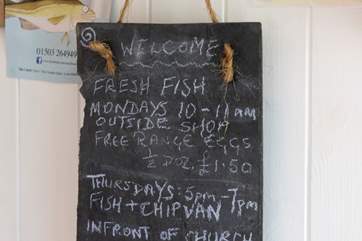 01503 264949
WELCOME
FRESH FISH
MONDAYS 10-11am
OUTSIDE SHOP
FREE RANGE EGGS
½ DOZ, £1.50
THURSDAYS: 5pm-7pm
FISH + CHIP VAN
INFRONT OF CHURCH